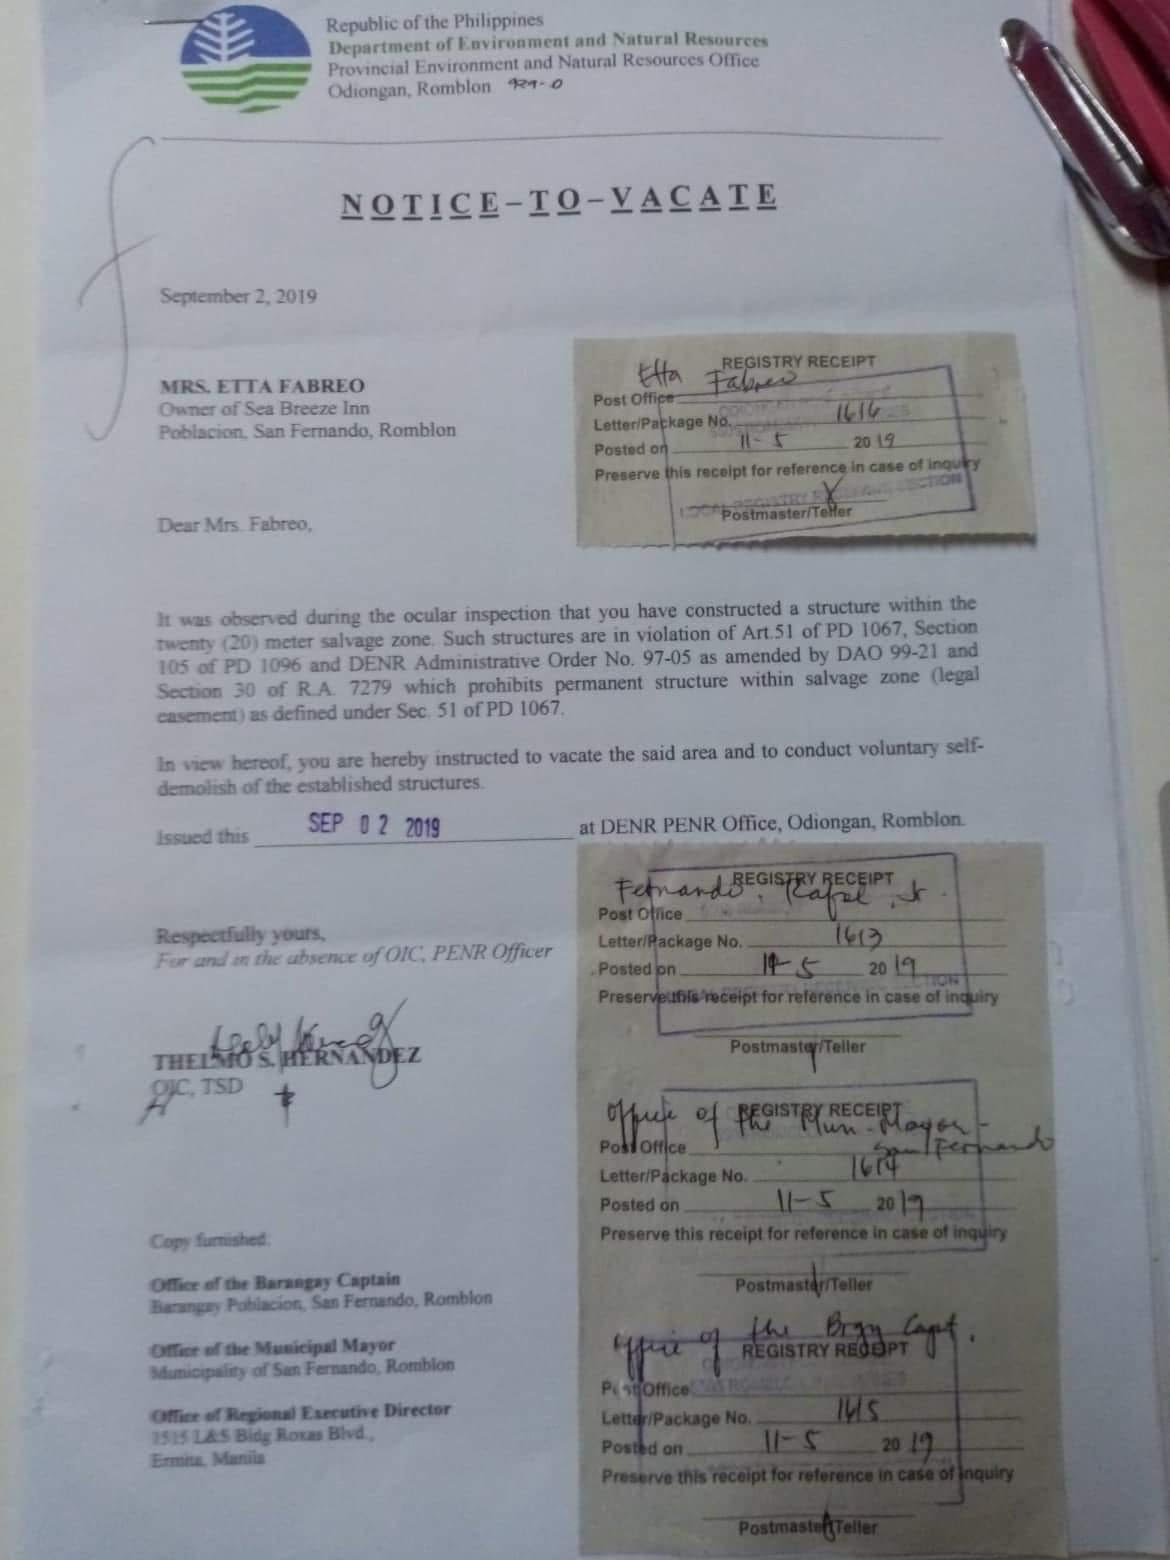 Republic of the Philippines
Department of Environment and Natural Resources
Provincial Environment and Natural Resources Office
Odiongan, Romblon
NOTICE-TO-VACATE
September 2, 2019
MRS. ETTA FABREO
Owner of Sea Breeze Inn
Poblacion, San Fernando, Romblon
REGISTRY RECEIPT
Etta Fabreo
Post Office
Letter/Package No. 1616
Posted on 11-5 2019
Preserve this receipt for reference in case of inquiry
LOCAL REGISTRY SECTION
Postmaster/Teller
Dear Mrs. Fabreo,
It was observed during the ocular inspection that you have constructed a structure within the
twenty (20) meter salvage zone. Such structures are in violation of Art.51 of PD 1067, Section
105 of PD 1096 and DENR Administrative Order No. 97-05 as amended by DAO 99-21 and
Section 30 of R.A. 7279 which prohibits permanent structure within salvage zone (legal
easement) as defined under Sec. 51 of PD 1067.
In view hereof, you are hereby instructed to vacate the said area and to conduct voluntary self-
demolish of the established structures.
Issued this SEP 02 2019 at DENR PENR Office, Odiongan, Romblon.
Respectfully yours,
For and in the absence of OIC, PENR Officer
THELMO S. HERNANDEZ
OIC, TSD
Copy furnished:
Office of the Barangay Captain
Barangay Poblacion, San Fernando, Romblon
Office of the Municipal Mayor
Municipality of San Fernando, Romblon
Office of Regional Executive Director
1515 L&S Bldg Roxas Blvd.,
Ermita, Manila
REGISTRY RECEIPT
Fernando, Rafael, Jr.
Post Office
Letter/Package No. 1613
Posted on 11-5 2019
Preserve this receipt for reference in case of inquiry
Postmaster/Teller
REGISTRY RECEIPT
Office of the Mun. Mayor-
San Fernando
Post Office
Letter/Package No. 1614
Posted on 11-5 2019
Preserve this receipt for reference in case of inquiry
Postmaster/Teller
Office of the Brgy Capt.
REGISTRY RECEIPT
Post Office
Letter/Package No. 1615
Posted on 11-5 2019
Preserve this receipt for reference in case of inquiry
Postmaster/Teller